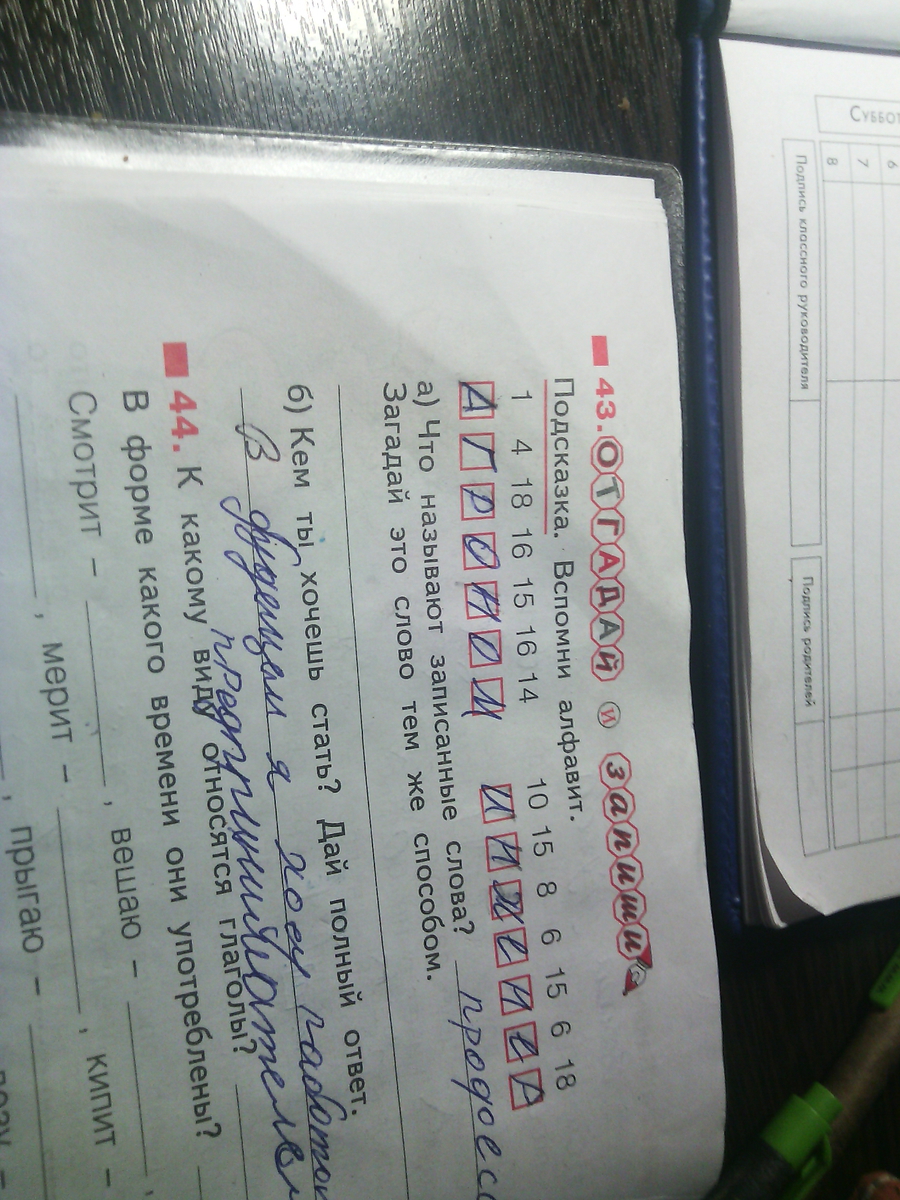 СУББОТ
6
7
8
Подпись классного руководителя
Подпись родителей
43. ОТГАДАЙ и запиши
Подсказка. Вспомни алфавит.
1 4 18 16 15 16 14 10 15 8 6 15 6 18
АГРОНОМ ИНЖЕНЕР
а) Что называют записанные слова? профес
Загадай это слово тем же способом.
б) Кем ты хочешь стать? Дай полный ответ.
В будущем я хочу работ
предпринимател
44. К какому виду относятся глаголы?
В форме какого времени они употреблены?
Смотрит – , вешаю – ,
, мерит – , кипит –
, прыгаю –